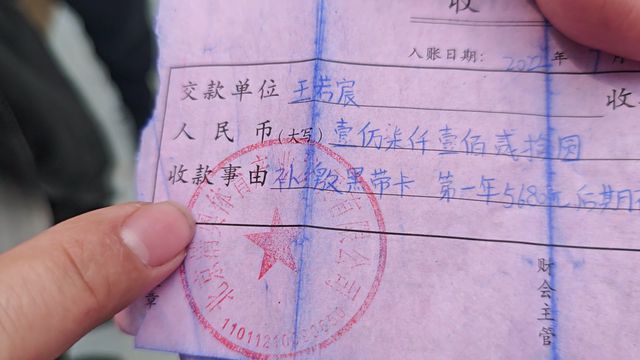 收
入账日期: 2022年 7月
交款单位 王若宸
收
人民币(大写) 壹仿柒仟壹佰贰拾园
收款事由 补缴黑带卡 第一年5680元后期月
财会主管
章
北京